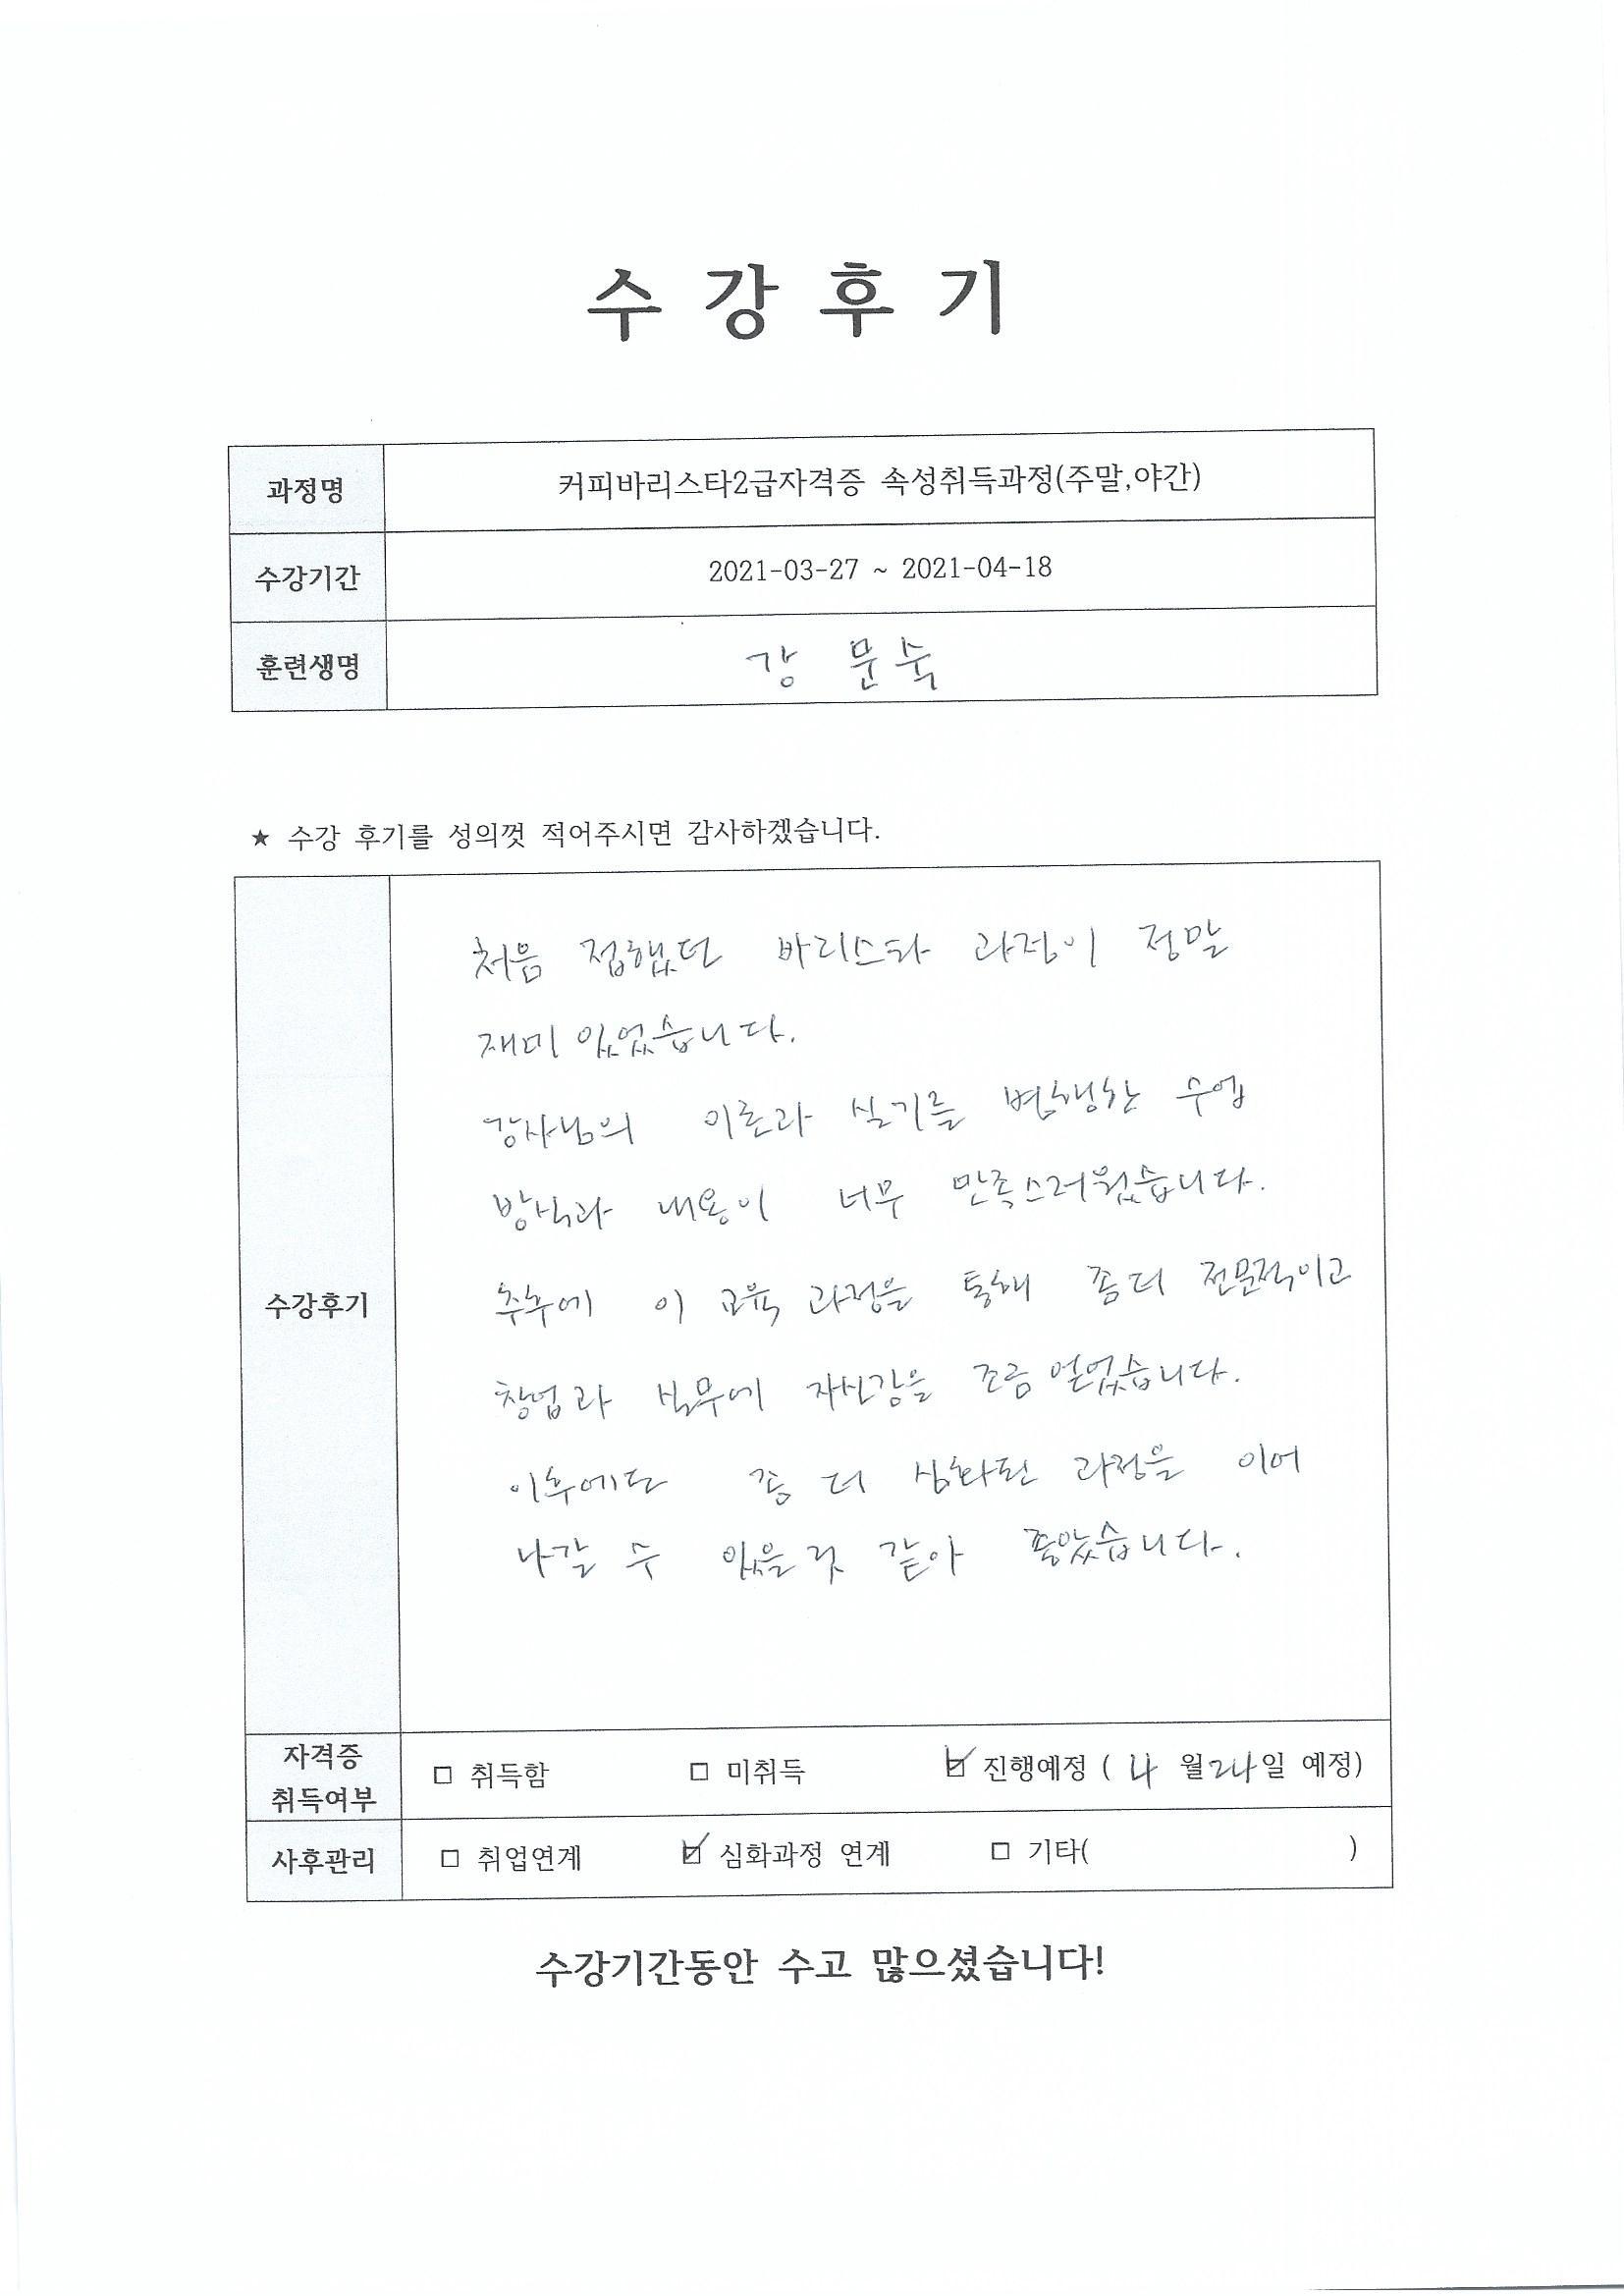 수 강 후 기
과정명 커피바리스타2급자격증 속성취득과정(주말,야간)
수강기간 2021-03-27 ~ 2021-04-18
훈련생명 강 문숙
★ 수강 후기를 성의껏 적어주시면 감사하겠습니다.
처음 접했던 바리스타 과정이 정말
재미 있었습니다.
강사님의 이론과 실기를 병행한 수업
방식과 내용이 너무 만족스러웠습니다.
수강후기
추후에 이 교육 과정을 통해 좀더 전문적이고
창업과 실무에 자신감을 조금 얻었습니다.
이후에도 좀 더 심화된 과정을 이어
나갈 수 있을것 같아 좋았습니다.
자격증
취득여부
□ 취득함 □ 미취득 ☑ 진행예정 ( 4 월 24일 예정)
사후관리 □ 취업연계 ☑ 심화과정 연계 □ 기타( )
수강기간동안 수고 많으셨습니다!